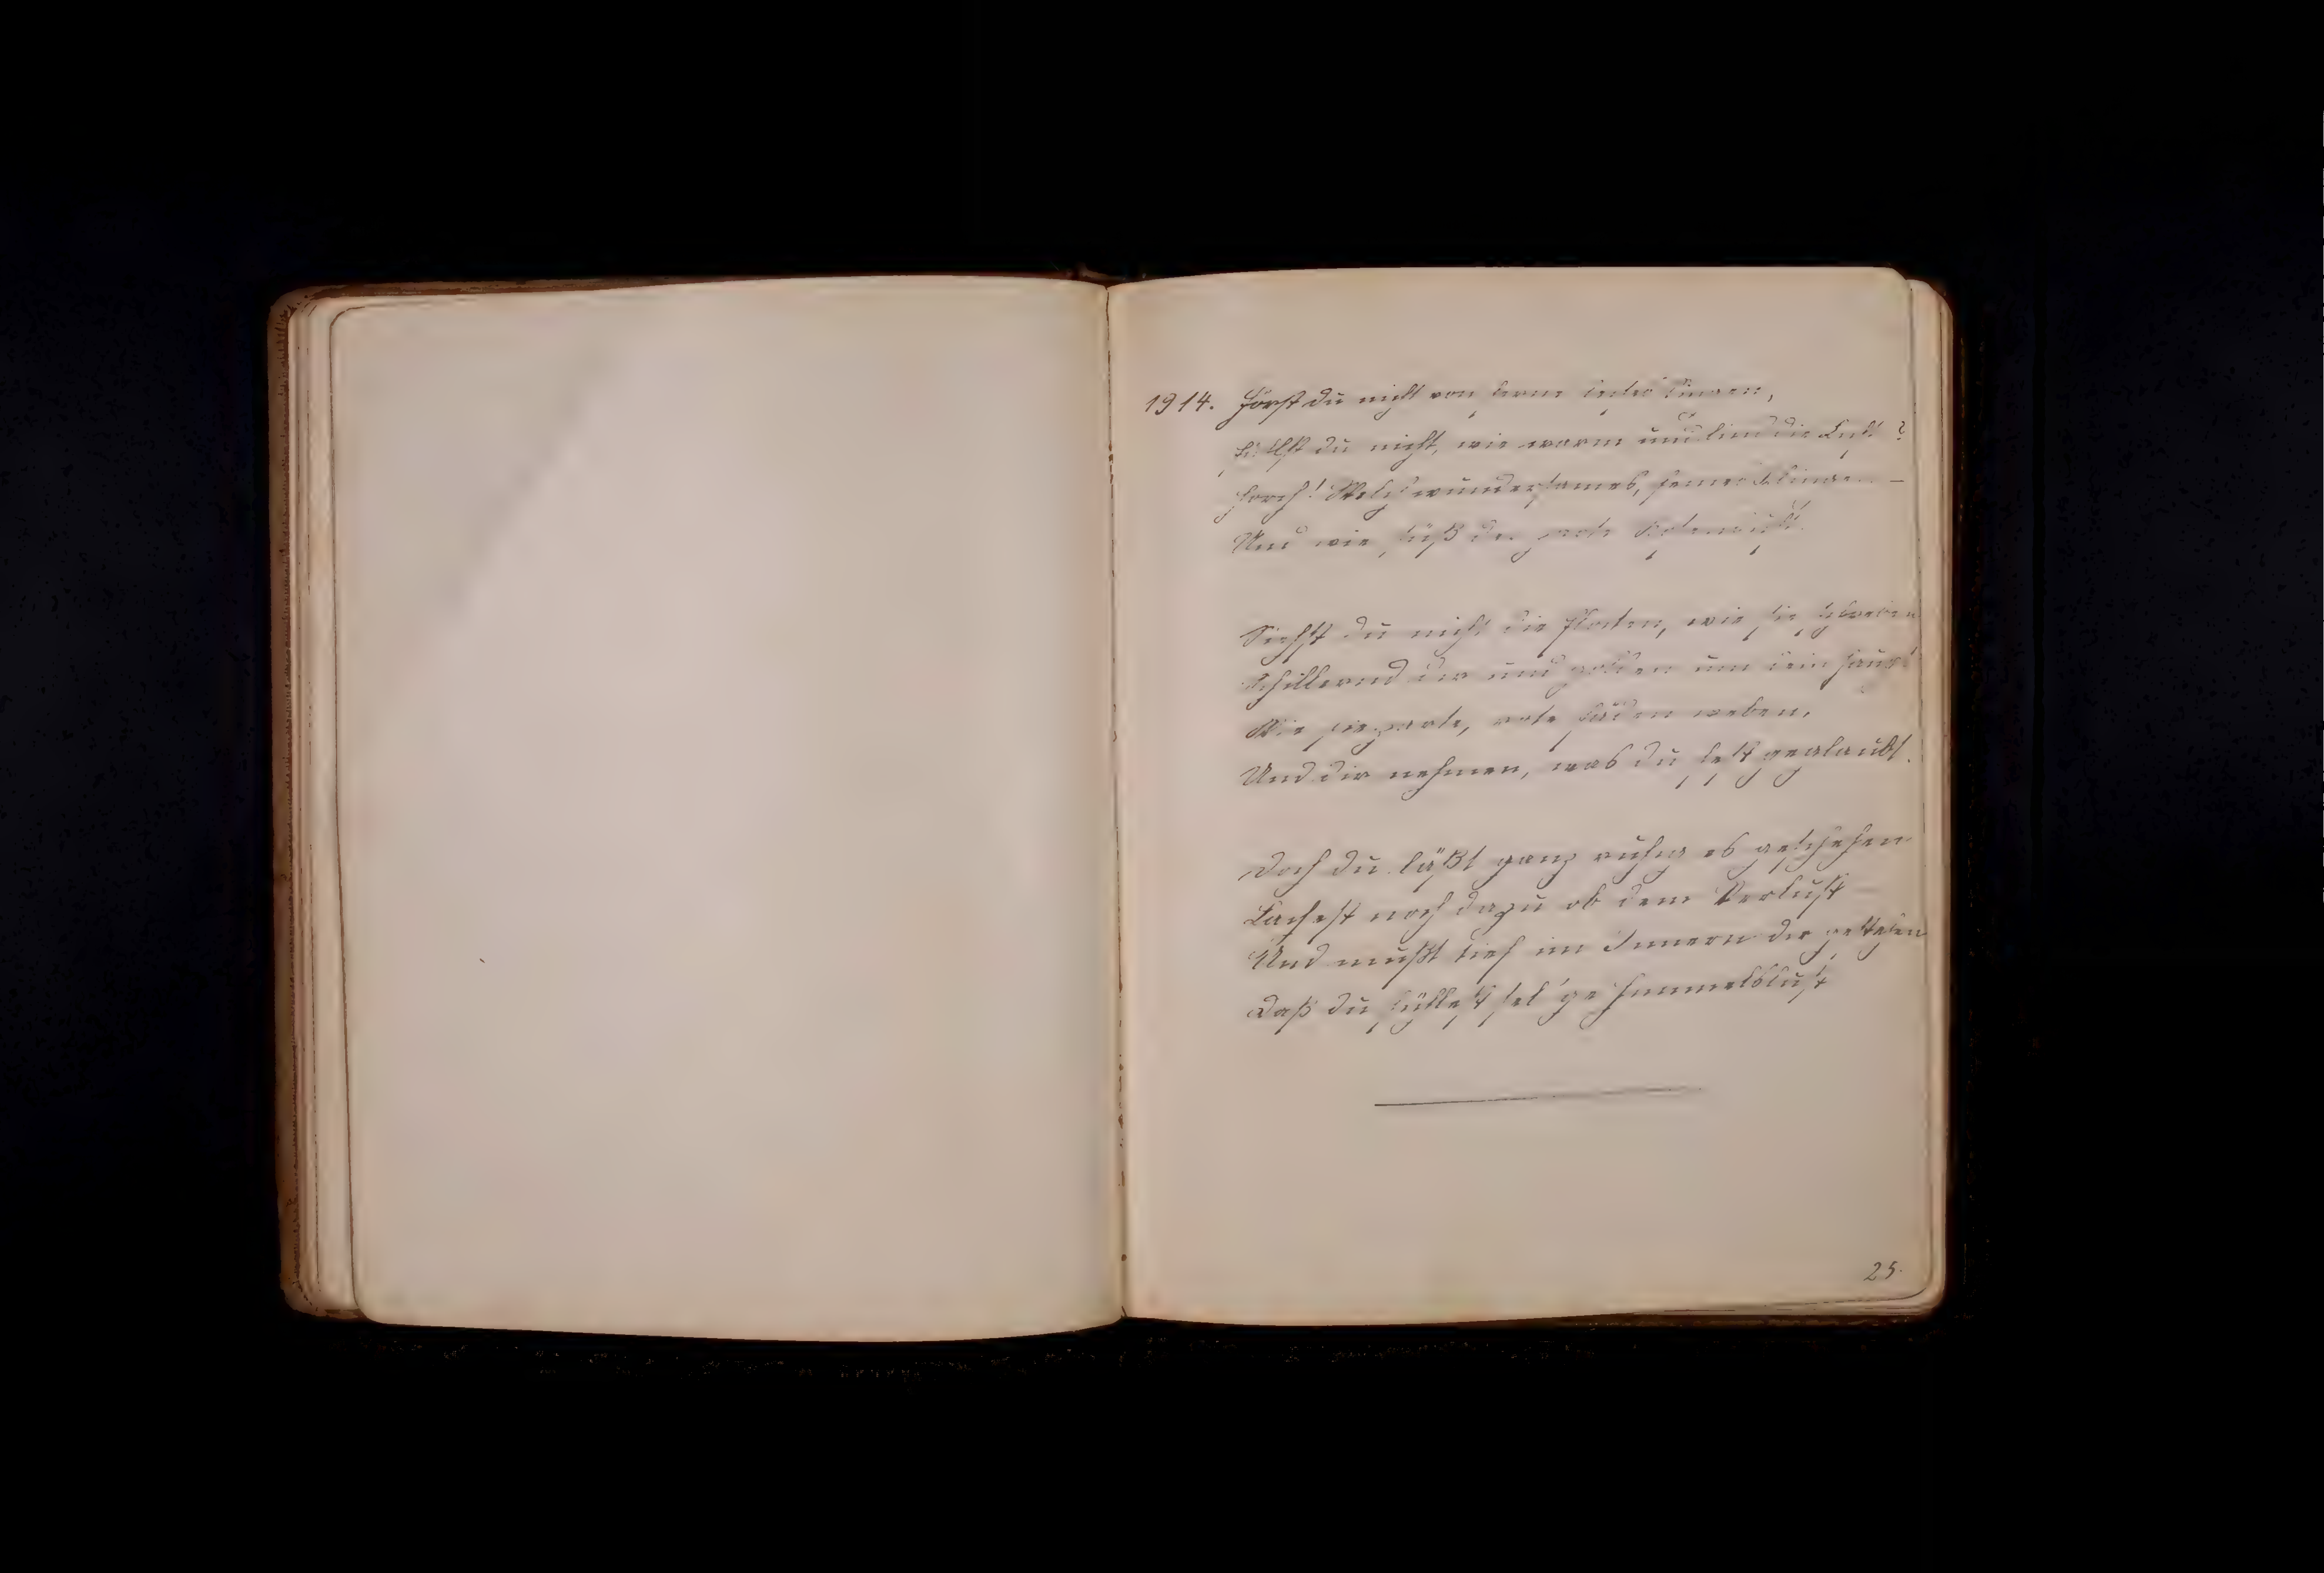 1914. Hörst du nicht von ferne leises Singen,
Fühlst du nicht, wie warm und lind die Luft?
Horch! Welch wundersames, feines Klingen –
Und wie süß der zarte
Siehst du nicht die Fäden, wie sie schweben
Schillernd dir und golden um dein Haupt
Wie sie zarte, rote Fäden weben,
Und dir nehmen, was du fest geglaubt.
Doch du läßt ganz ruhig es geschehen
Lachest noch dazu ob dem Verlust
Und mußt tief im Innern dir gestehen
Daß du fühlest sel'ge Himmelslust
25.